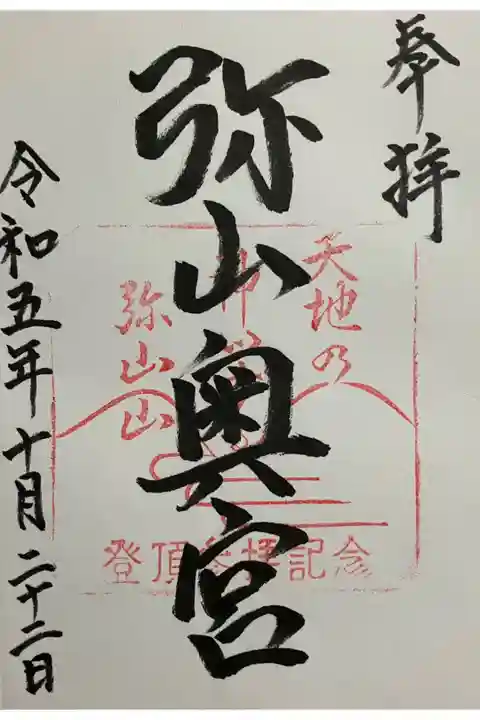 奉拝
天地乃
弥山奥宮
弥山山
登頂参拝記念
令和五年十月二十二日